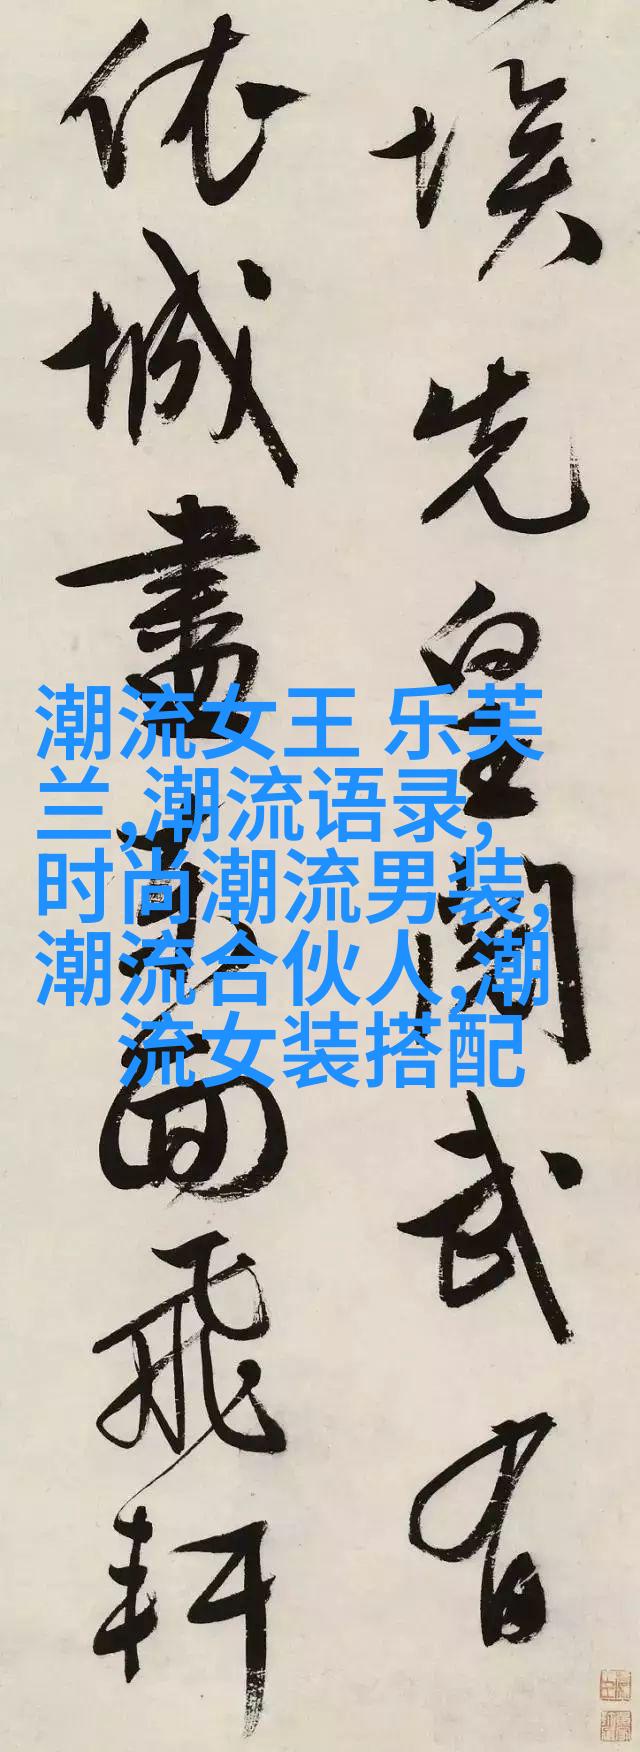 埃先皇閱武有
依城盡面飛軒
潮流女王 乐芙
兰,潮流语录,
时尚潮流男装,
潮流合伙人,潮
流女装搭配